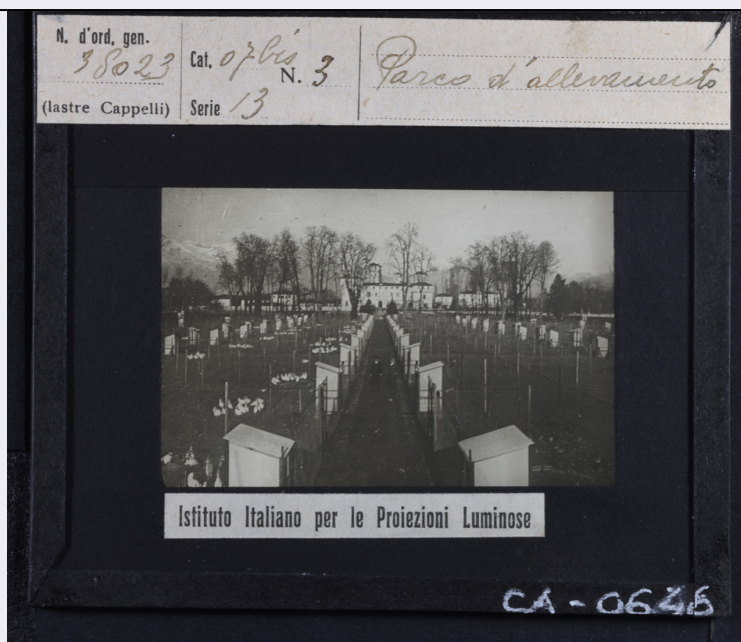 N. d'ord. gen.
38023
(lastre Cappelli)
Cat. 07bis
N. 3
Serie 13
Parco d'allevamento
Istituto Italiano per le Proiezioni Luminose